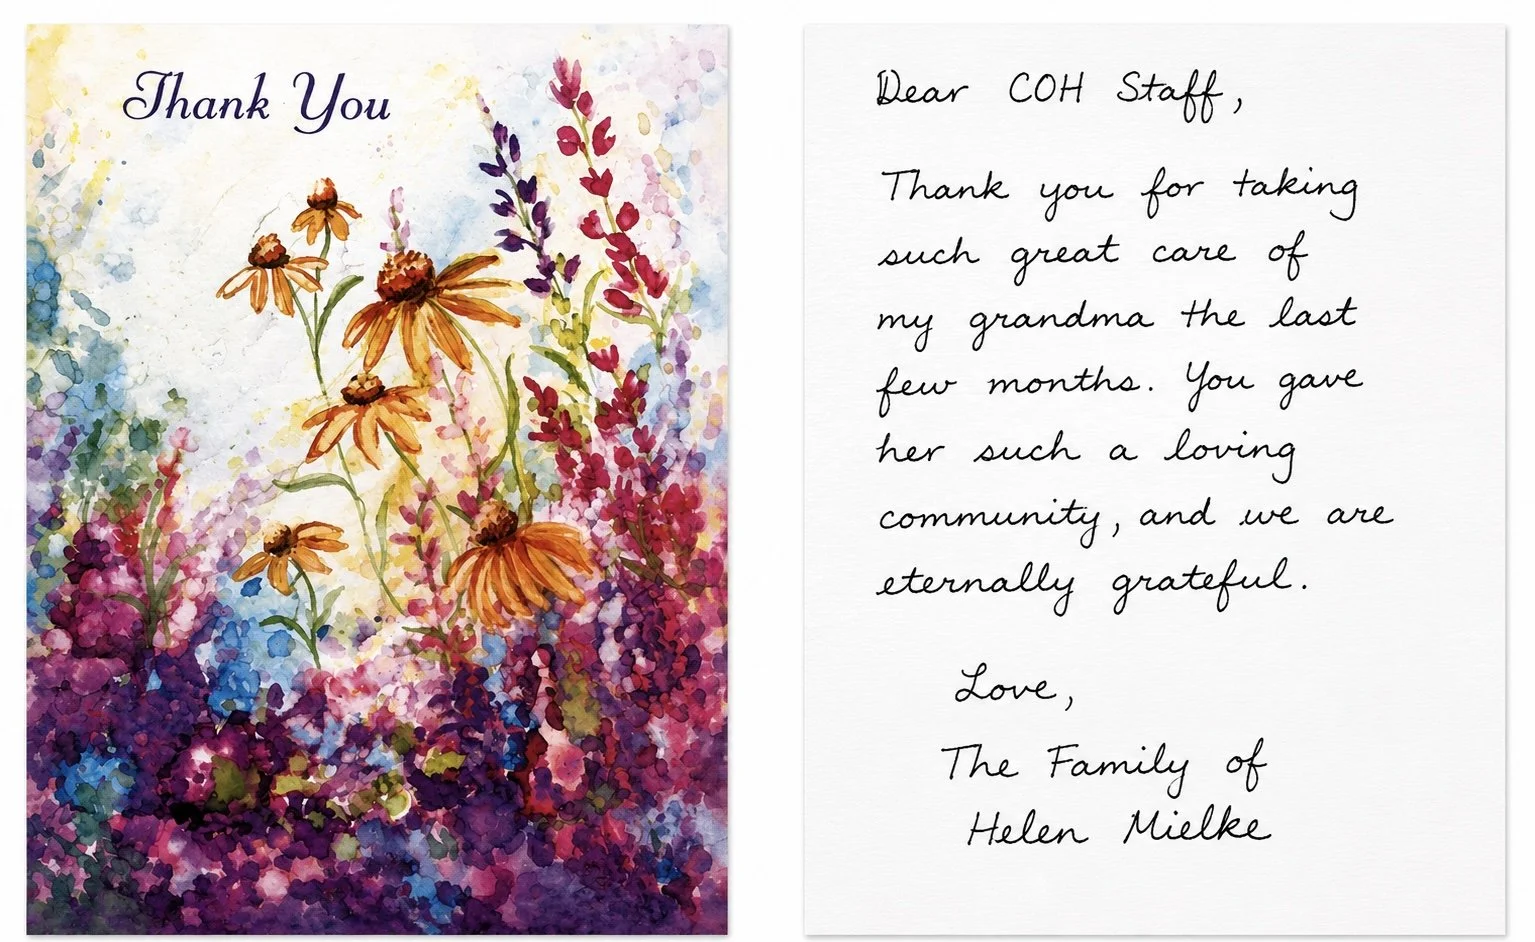 Thank You
Dear COH Staff,
Thank you for taking
such great care of
my grandma the last
few months. You gave
her such a loving
community, and we are
eternally grateful.
Love,
The Family of
Helen Mielke